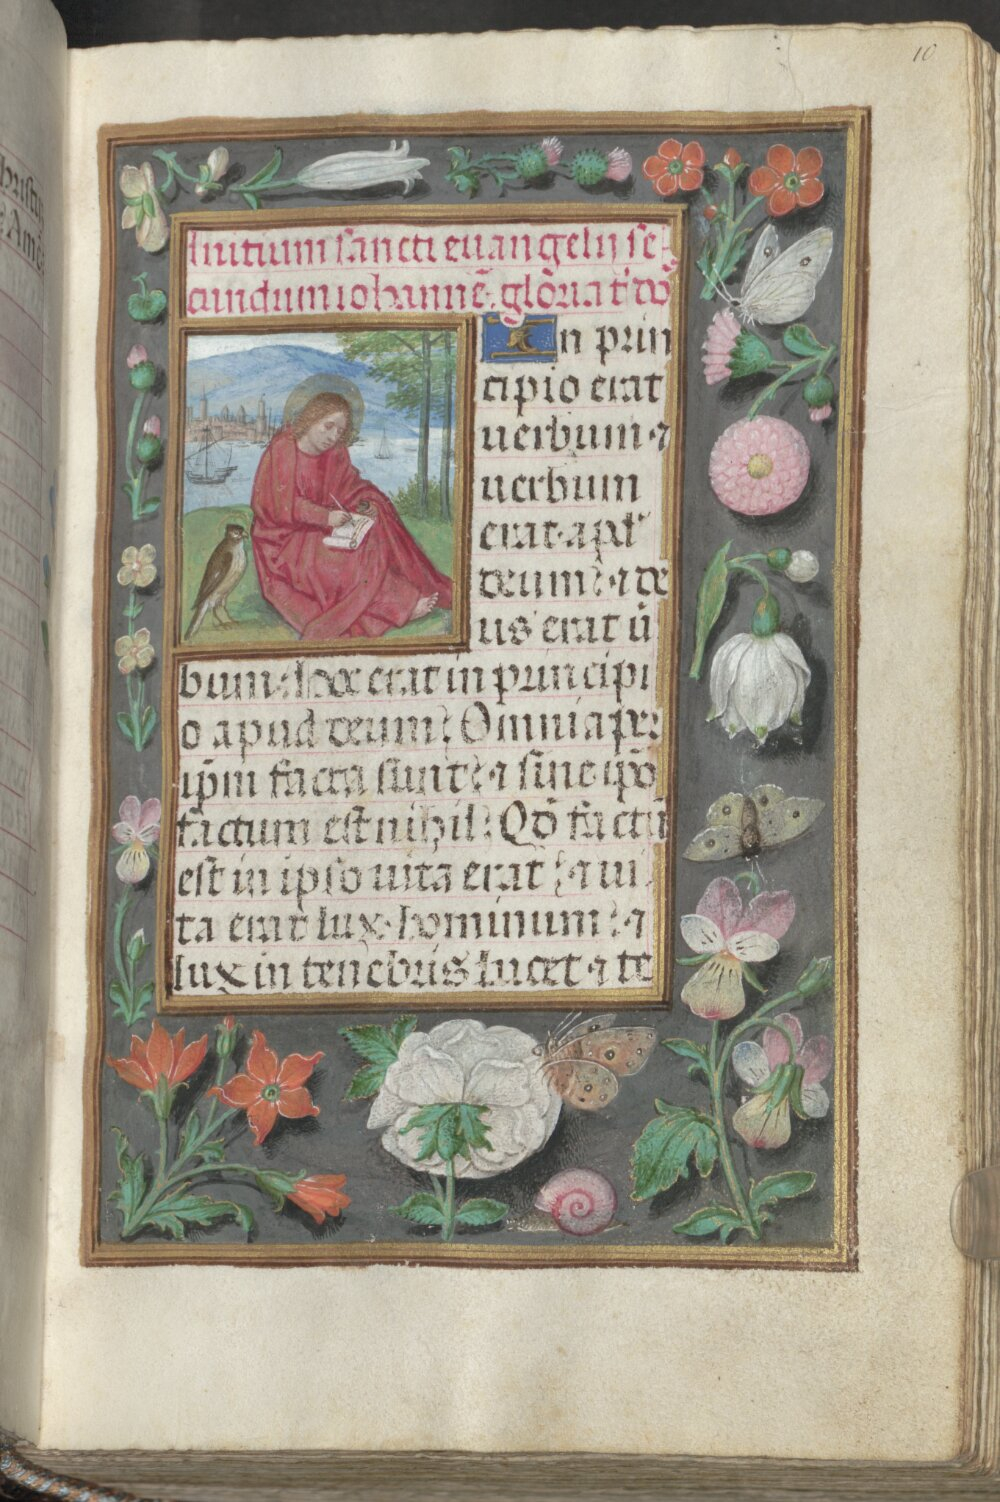 10
Initium sancti euangelii se-
cundum iohannē. glōria t' dō
In prin
cipio erat
uerbum ⁊
uerbum
erat apḋ
deum: ⁊ de
us erat ū
bum. hoc erat in principi
o apud deum: Omnia per
ip̄m facta sunt: ⁊ sine ip̄o
factum est nihil: Qd̄ factū
est in ipso uita erat: ⁊ ui
ta erat lux hominum: ⁊
lux in tenebris lucet ⁊ te